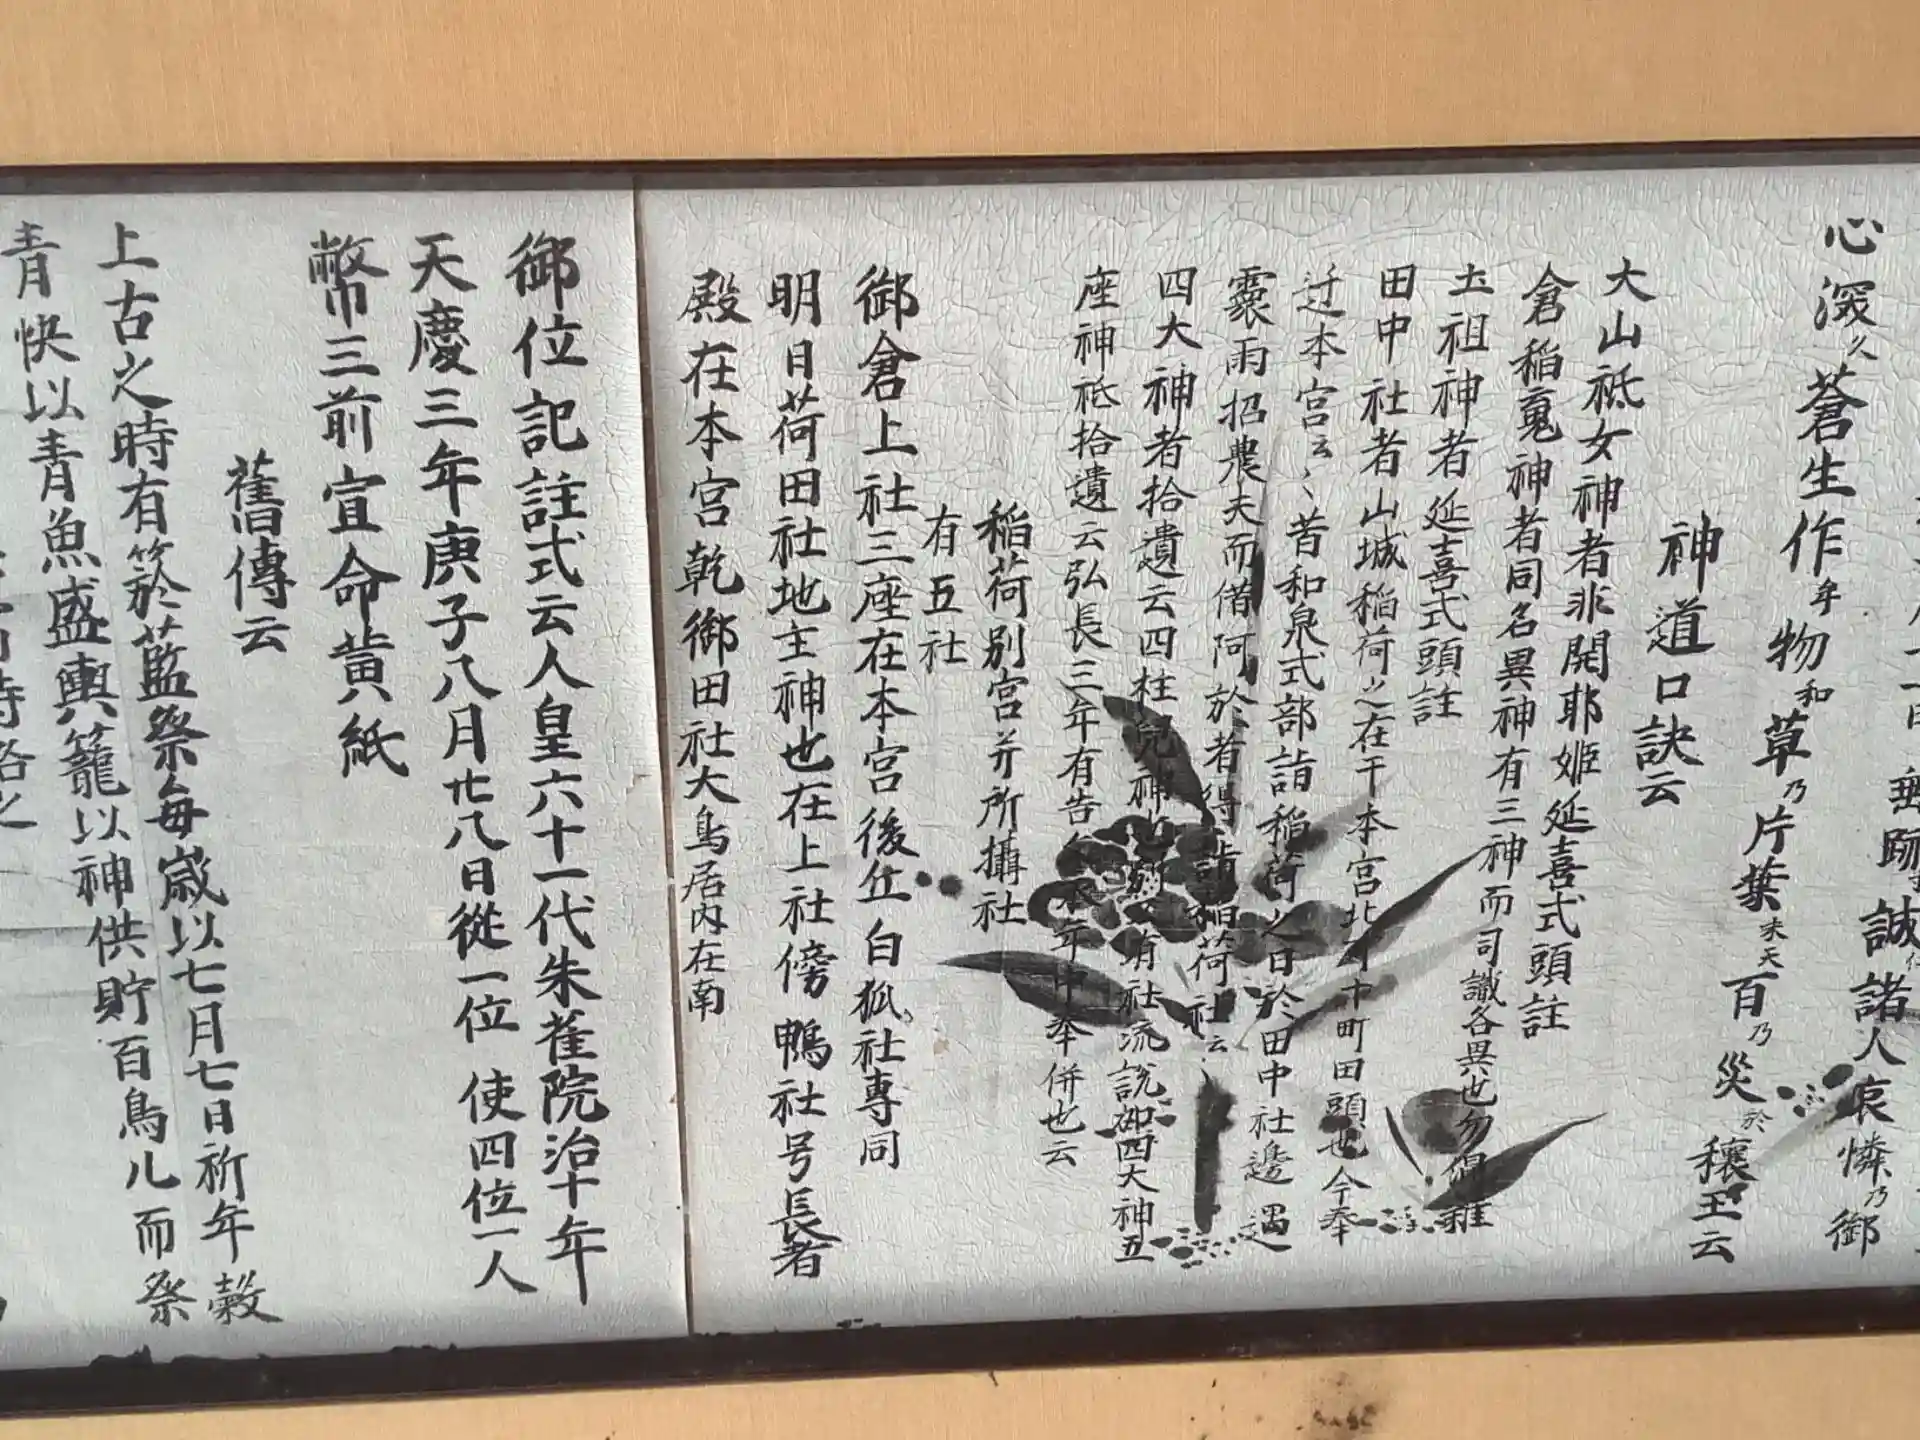 誠諸人哀憐乃御
心深久蒼生作牟物和草乃片葉末天百乃災於穰王云
神道口訣云
大山祗女神者非開耶姫延喜式頭註
倉稲䰟神者同名異神有三神而司識各異也勿
土祖神者延喜式頭註
田中社者山城稲荷之在干本宮北 十町田頭也今奉
迁本宮云〻昔和泉式部詣稲荷之日於田中社邊遇
霡雨招農夫而借阿於者得詣稲荷社云
四大神者拾遺云四柱兒神 有社流説如四大神五
座神祗拾遺云弘長三年有告 年中奉併也云
稲荷別宮并所攝社
有五社
御倉上社三座在本宮後丘白狐社專同
明日荷田社地主神也在上社傍鴨社号長者
殿在本宮乾御田社大鳥居内在南
御位記註式云人皇六十一代朱雀院治十年
天慶三年庚子八月廿八日從一位使四位一人
幣三前宣命黄紙
舊傳云
上古之時有菸藍祭每歳以七月七日祈年穀
青快以青魚盛輿籠以神供貯百鳥儿而祭